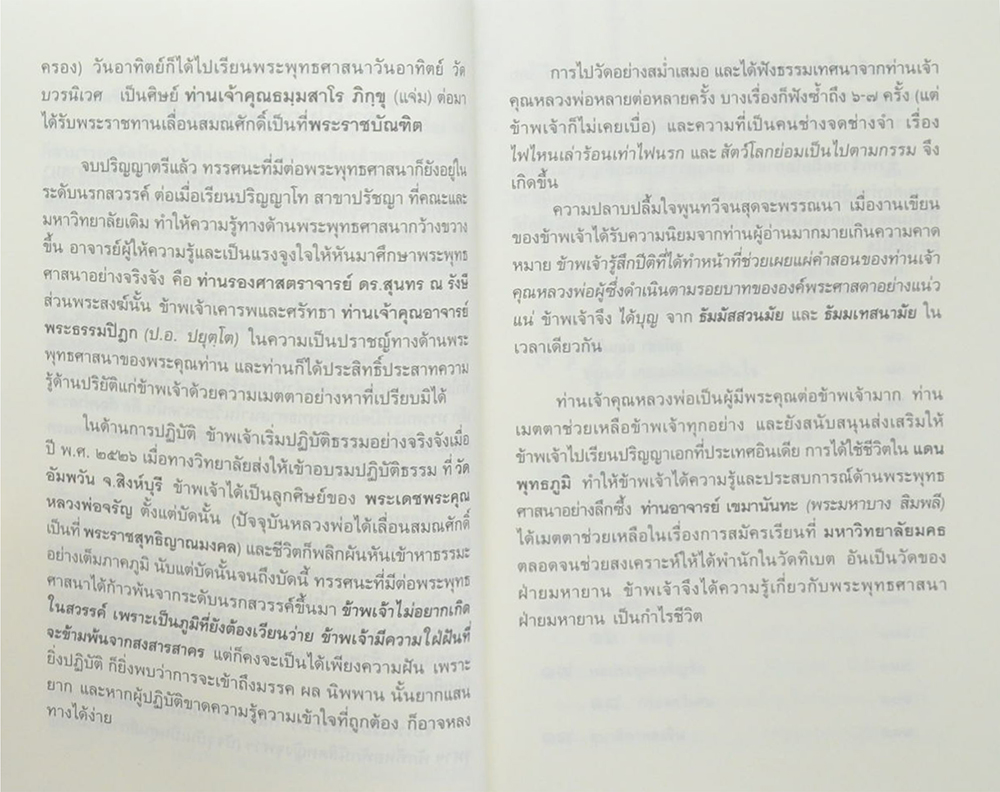 ครอง) วันอาทิตย์ก็ได้ไปเรียนพระพุทธศาสนาวันอาทิตย์ วัด
บวรนิเวศ เป็นศิษย์ ท่านเจ้าคุณธมฺมสาโร ภิกฺขุ (แจ่ม) ต่อมา
ได้รับพระราชทานเลื่อนสมณศักดิ์เป็นที่พระราชบัณฑิต
จบปริญญาตรีแล้ว ทรรศนะที่มีต่อพระพุทธศาสนาก็ยังอยู่ใน
ระดับนรกสวรรค์ ต่อเมื่อเรียนปริญญาโท สาขาปรัชญา ที่คณะและ
มหาวิทยาลัยเดิม ทำให้ความรู้ทางด้านพระพุทธศาสนากว้างขวาง
ขึ้น อาจารย์ผู้ให้ความรู้และเป็นแรงจูงใจให้หันมาศึกษาพระพุทธ
ศาสนาอย่างจริงจัง คือ ท่านรองศาสตราจารย์ ดร.สุนทร ณ รังษี
ส่วนพระสงฆ์นั้น ข้าพเจ้าเคารพและศรัทธา ท่านเจ้าคุณอาจารย์
พระธรรมปิฎก (ป.อ. ปยุตฺโต) ในความเป็นปราชญ์ทางด้านพระ
พุทธศาสนาของพระคุณท่าน และท่านก็ได้ประสิทธิ์ประสาทความ
รู้ด้านปริยัติแก่ข้าพเจ้าด้วยความเมตตาอย่างหาที่เปรียบมิได้
ในด้านการปฏิบัติ ข้าพเจ้าเริ่มปฏิบัติธรรมอย่างจริงจังเมื่อ
ปี พ.ศ. ๒๕๒๖ เมื่อทางวิทยาลัยส่งให้เข้าอบรมปฏิบัติธรรม ที่ วัด
อัมพวัน จ.สิงห์บุรี ข้าพเจ้าได้เป็นลูกศิษย์ของ พระเดชพระคุณ
หลวงพ่อจรัญ ตั้งแต่บัดนั้น (ปัจจุบันหลวงพ่อได้เลื่อนสมณศักดิ์
เป็นที่ พระราชสุทธิญาณมงคล) และชีวิตก็พลิกผันหันเข้าหาธรรมะ
อย่างเต็มภาคภูมิ นับแต่บัดนั้นจนถึงบัดนี้ ทรรศนะที่มีต่อพระพุทธ
ศาสนาได้ก้าวพ้นจากระดับนรกสวรรค์ขึ้นมา ข้าพเจ้าไม่อยากเกิด
ในสวรรค์ เพราะเป็นภูมิที่ยังต้องเวียนว่าย ข้าพเจ้ามีความใฝ่ฝันที่
จะข้ามพ้นจากสงสารสาคร แต่ก็คงจะเป็นได้เพียงความฝัน เพราะ
ยิ่งปฏิบัติ ก็ยิ่งพบว่าการจะเข้าถึงมรรค ผล นิพพาน นั้นยากแสน
ยาก และหากผู้ปฏิบัติขาดความรู้ความเข้าใจที่ถูกต้อง ก็อาจหลง
ทางได้ง่าย
การไปวัดอย่างสม่ำเสมอ และได้ฟังธรรมเทศนาจากท่านเจ้า
คุณหลวงพ่อหลายต่อหลายครั้ง บางเรื่องก็ฟังซ้ำถึง ๖-๗ ครั้ง (แต่
ข้าพเจ้าก็ไม่เคยเบื่อ) และความที่เป็นคนช่างจดช่างจำ เรื่อง
ไฟไหนเล่าร้อนเท่าไฟนรก และ สัตว์โลกย่อมเป็นไปตามกรรม จึง
เกิดขึ้น
ความปลาบปลื้มใจพูนทวีจนสุดจะพรรณนา เมื่องานเขียน
ของข้าพเจ้าได้รับความนิยมจากท่านผู้อ่านมากมายเกินความคาด
หมาย ข้าพเจ้ารู้สึกปีติที่ได้ทำหน้าที่ช่วยเผยแผ่คำสอนของท่านเจ้า
คุณหลวงพ่อผู้ซึ่งดำเนินตามรอยบาทขององค์พระศาสดาอย่างแน่ว
แน่ ข้าพเจ้าจึง ได้บุญ จาก ธัมมัสสวนมัย และ ธัมมเทสนามัย ใน
เวลาเดียวกัน
ท่านเจ้าคุณหลวงพ่อเป็นผู้มีพระคุณต่อข้าพเจ้ามาก ท่าน
เมตตาช่วยเหลือข้าพเจ้าทุกอย่าง และยังสนับสนุนส่งเสริมให้
ข้าพเจ้าไปเรียนปริญญาเอกที่ประเทศอินเดีย การได้ใช้ชีวิตใน แดน
พุทธภูมิ ทำให้ข้าพเจ้าได้ความรู้และประสบการณ์ด้านพระพุทธ
ศาสนาอย่างลึกซึ้ง ท่านอาจารย์ เขมานันทะ (พระมหาบาง สิมพลี)
ได้เมตตาช่วยเหลือในเรื่องการสมัครเรียนที่ มหาวิทยาลัยมคธ
ตลอดจนช่วยสงเคราะห์ให้ได้พำนักในวัดทิเบต อันเป็นวัดของ
ฝ่ายมหายาน ข้าพเจ้าจึงได้ความรู้เกี่ยวกับพระพุทธศาสนา
ฝ่ายมหายาน เป็นกำไรชีวิต